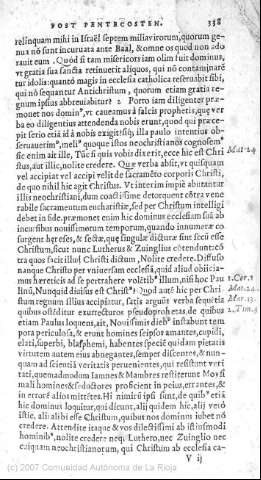 POST PENTECOSTEN. 338
relinquam mihi in Israel septem miliavirorum, quorum ge-
nua nō sunt incuruata ante Baal, & omne os quod non ado
rauit eum. Quòd si tam misericors iam olim fuit dominus,
vt gratia sua sancta retinuerit aliquos, qui nō contaminarē
tur idolis: quantò magis in ecclesia catholica reseruabit sibi,
qui nō sequantur Antichristum, quorum etiam gratia re-
gnum ipsius abbreuiabitur? Porro iam diligenter præ-
monet nos dominus, vt caueamus à falsis prophetis, quæ ver
ba eo diligentius attendenda nobis erunt, quod qui præce-
pit serio etiā id à nobis exigit: siq; illa paulò intentius ob-
seruauerimus, meliùs quoque istos neochristianos cognoscemus
sic enim ait ille, Tūc si quis vobis dixerit, ecce hic est Chri Mat. 24
stus, aut illic, nolite credere. Quæ verba absit, vt quisquam
vel accipiat vel accipi velit de sacramēto corporis Christi,
de quo nihil hic agit Christus. Vt interim impiè abutantur
illis neochristiani, dum coactissimè detorquent cōtra vene
rabile sacramentum eucharistiæ, sed per Christum intelligi
debet in fide. præmonet enim hic dominus ecclesiam suā ab
incursibus nouissimorum temporum, quando innumeræ co
surgent hæreses, & sectæ, quæ singulæ dicturæ sunt secū esse
Christum, sicut nunc Lutherus & Zuinglius cōtendunt: cō
tra quos facit illud Christi dictum, Nolite credere. Diffuso
nanque Christo per vniuersam ecclesiā, quid aliud obiicia-
mus hæreticis ad se pertrahere volētibus illum, nisi hoc Pau 1. Cor. 1
linū, Nunquid diuisus est Christus? Quod autē hic per Chri Mat. 24.
stum regnum illius accipiatur, satis arguūt verba sequētia Mar. 13.
quibus ostēditur exurrecturos pseudoprophetas. de quibus 2. Tim. 3
etiam Paulus loquens, ait, Nouissimis diebus instabunt tem
pora periculosa, & erunt homines seipsos amantes, cupidi,
elati, superbi, blasphemi, habentes speciē quidam pietatis
virtutem autem eius abnegantes, semper discentes, & nun-
quam ad scientiā veritatis peruenientes, qui resistunt veri
tati, quemadmodum Iamnes & Mambres restiterunt Moysi
mali homines & seductores proficient in peius, errantes, &
in errorē alios mittētes. Hi nimirū ipsi sunt, de quibus etiā
hic dominus loquitur, qui dicunt, alij quidem hic, alij verò
istic, alij alibi esse Christum, quibus nos dominus iubet nō
credere. Attendite itaque & vos dilectissimi ab istiusmodi
hominibus, nolite credere neque Luthero, nec Zuinglio nec
cuiquam neochristianorum, qui Christum ab ecclesia ca-
V ij
(c) 2007 Comunidad Autónoma de La Rioja